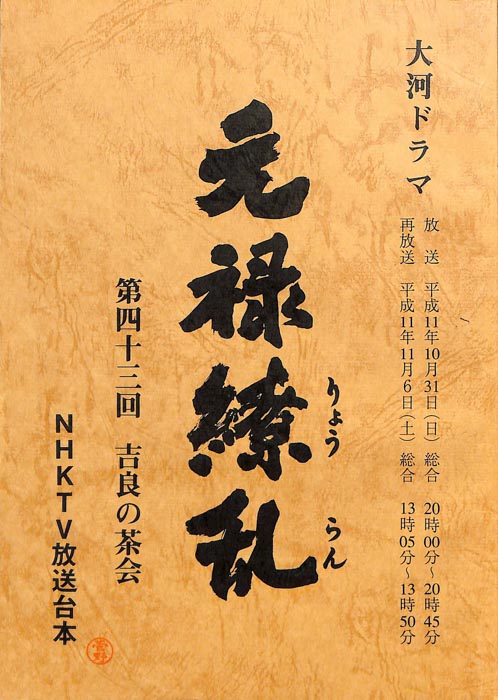 大河ドラマ
放送 平成11年10月31日(日) 総合 20時00分~20時45分
再放送 平成11年11月6日(土) 総合 13時05分~13時50分
元禄繚乱
りょう らん
第四十三回 吉良の茶会
NHKTV放送台本